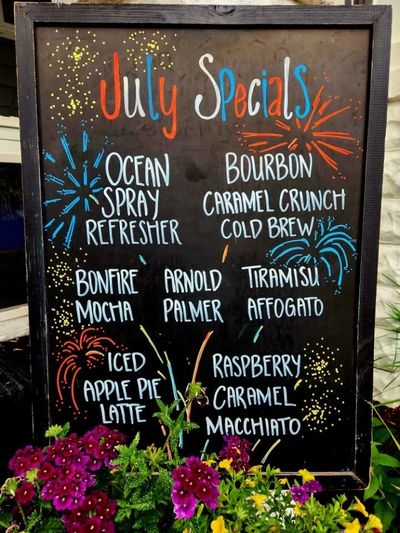 July Specials
OCEAN
SPRAY
REFRESHER
BOURBON
CARAMEL CRUNCH
COLD BREW
BONFIRE
MOCHA
ARNOLD
PALMER
TIRAMISU
AFFOGATO
ICED
APPLE PIE
LATTE
RASPBERRY
CARAMEL
MACCHIATO